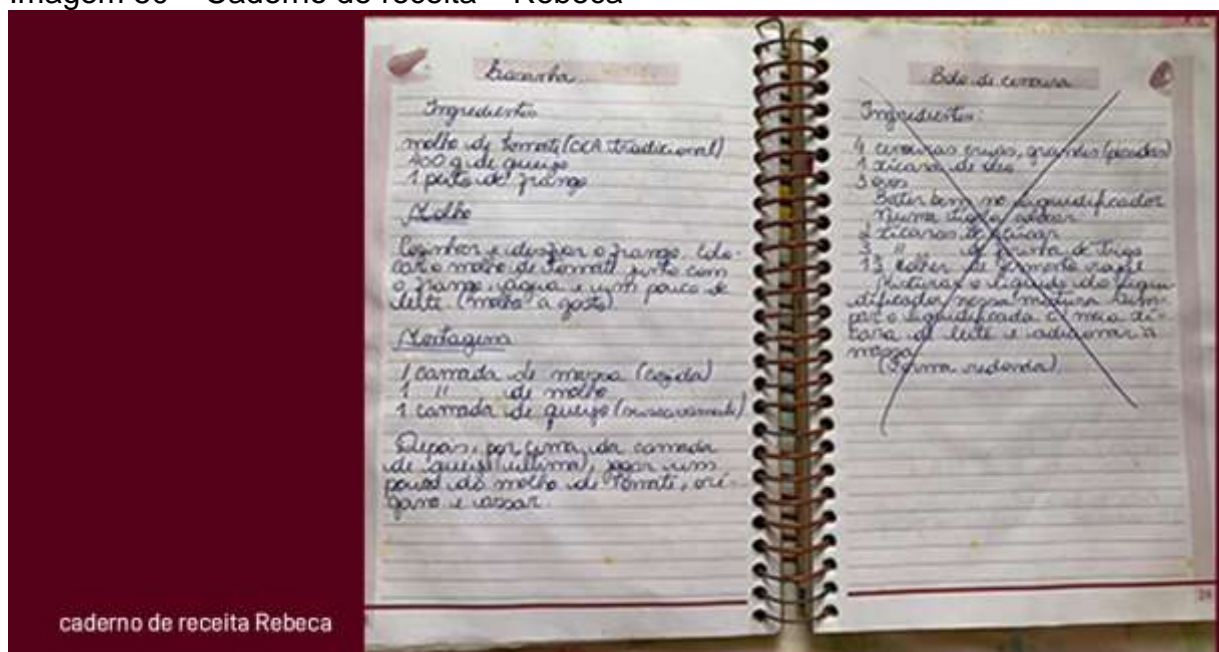 Imagem 30 – Caderno de receita – Rebeca
Lasanha
Ingredientes
molho de tomate (CICA tradicional)
400 g de queijo
1 peito de frango
Molho
Cozinhar e desfiar o frango. Colo-
car o molho de tomate junto com
o frango, água e um pouco de
leite (molho a gosto).
Montagem
1 camada de massa (cozida)
1 " de molho
1 camada de queijo (sucessivamente)
Depois, por cima da camada
de queijo (última), jogar um
pouco do molho de tomate, oré-
gano e assar.
Bolo de cenoura
Ingredientes:
4 cenouras cruas, grandes (picadas)
1 xícara de óleo
3 ovos
Bater bem no liquidificador
Numa tigela colocar
xícaras de açúcar
" de farinha de trigo
colher de fermento
Misturar o líquido do liqui-
dificador nessa mistura. Lim-
par o liquidificador c/ meia xí-
cara de leite e adicionar a
massa
(Forma redonda)
caderno de receita Rebeca